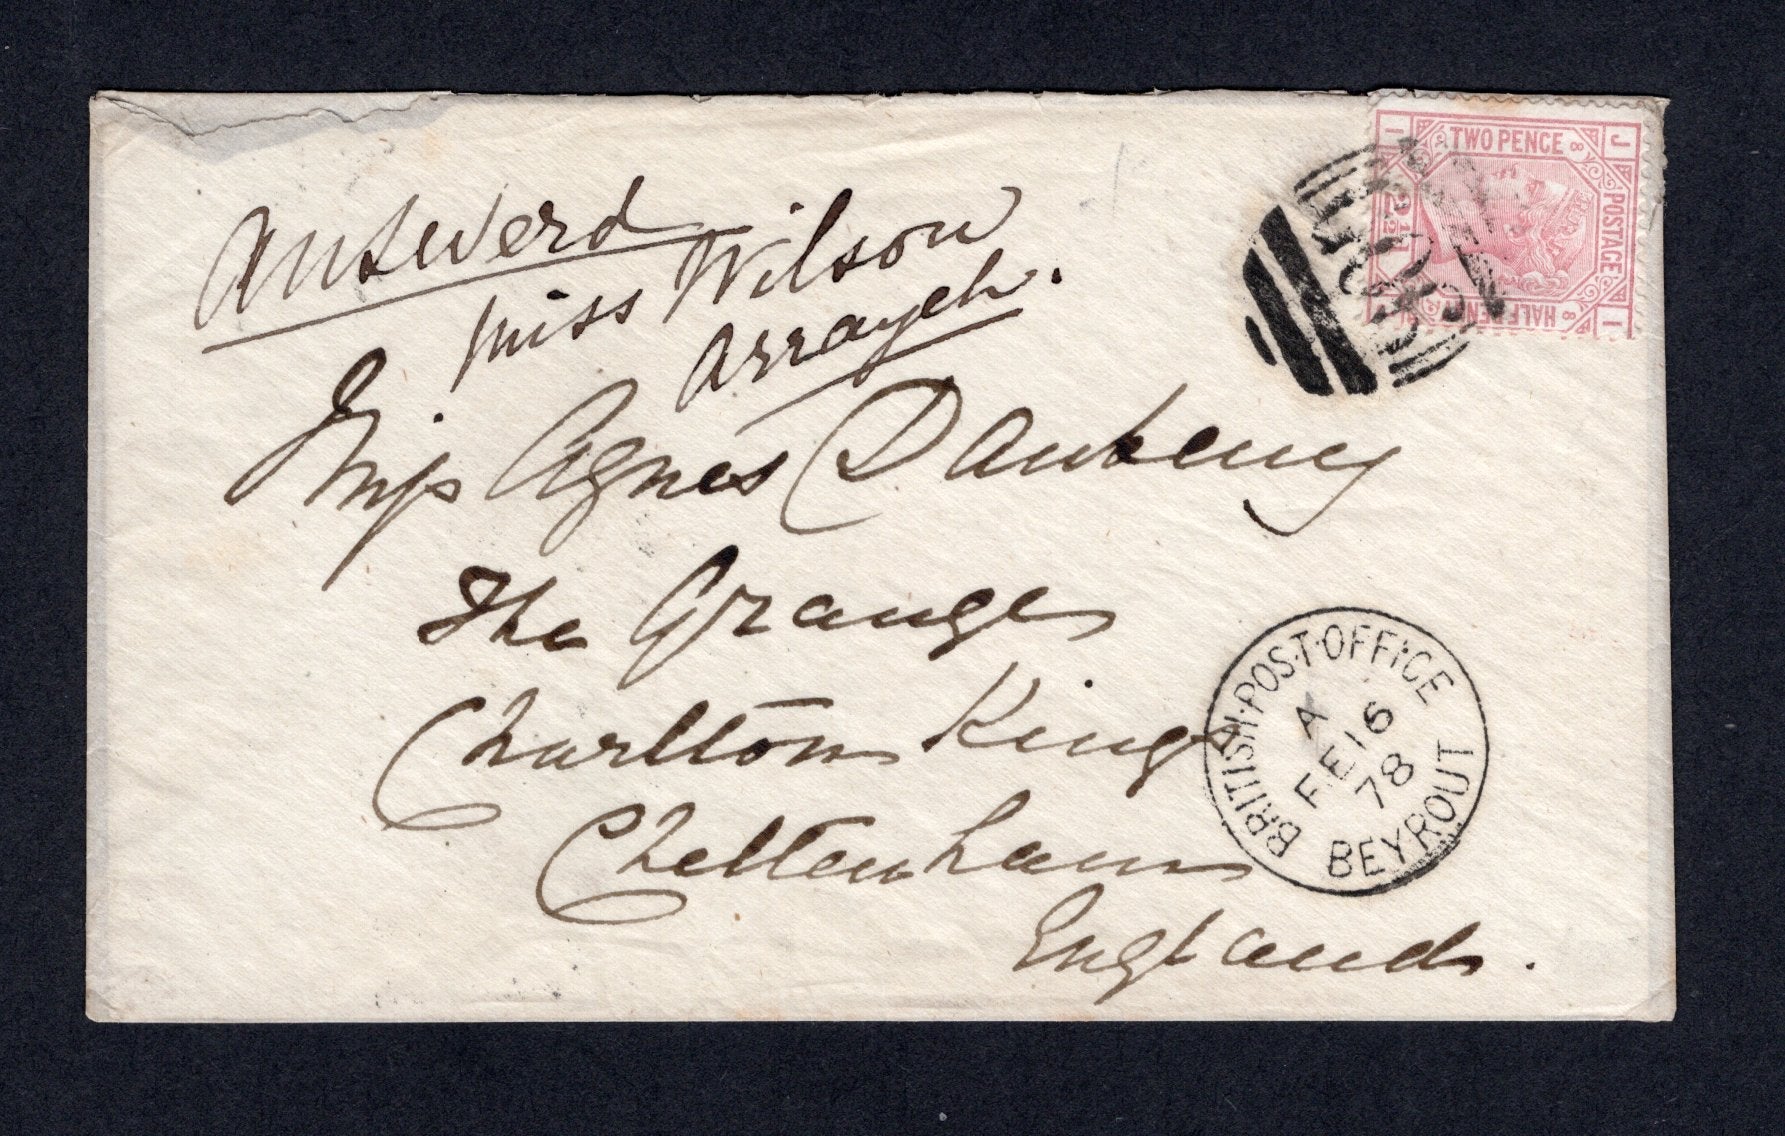 Answerd
Miss Wilson
Arrayeh.
Miss Agnes Dankeney
The Grange
Charlton Kings
Cheltenham
England.
TWO PENCE
HALFPENNY
POSTAGE
2½
J
I
I
8
8
G06
BRITISH·POST·OFFICE
A
FE 16
78
BEYROUT